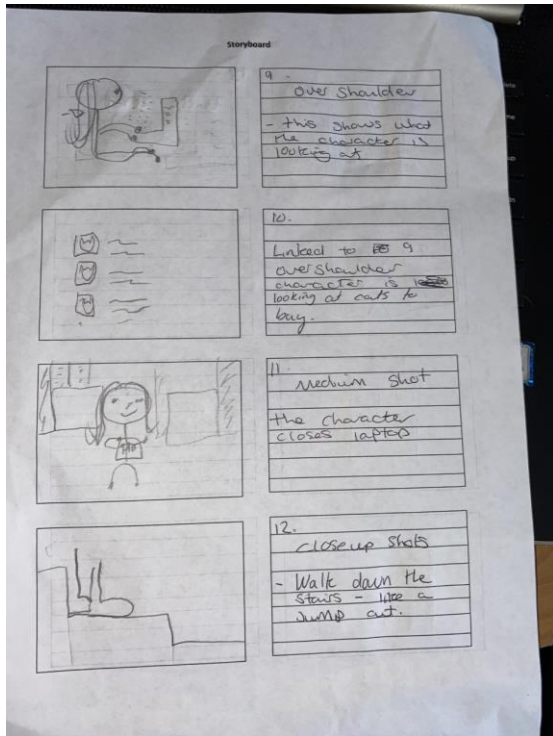 Storyboard
9.
over shoulder
- this shows what
the character is
looking at
10.
Linked to 9
over shoulder
character is
looking at cats to
buy.
11.
Medium shot
the character
closes laptop
12.
closeup shots
- Walk down the
stairs - like a
jump cut.